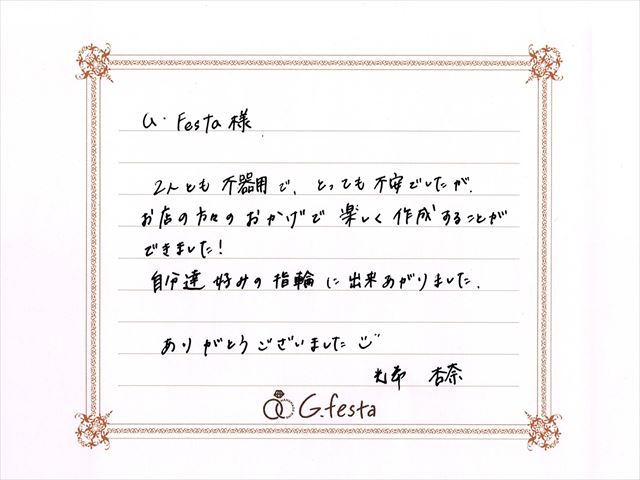 G. Festa 様
2人とも不器用で、とっても不安でしたが、
お店の方々のおかげで楽しく作成することが
できました!
自分達好みの指輪に出来あがりました.
ありがとうございました
光希 杏奈
G.festa